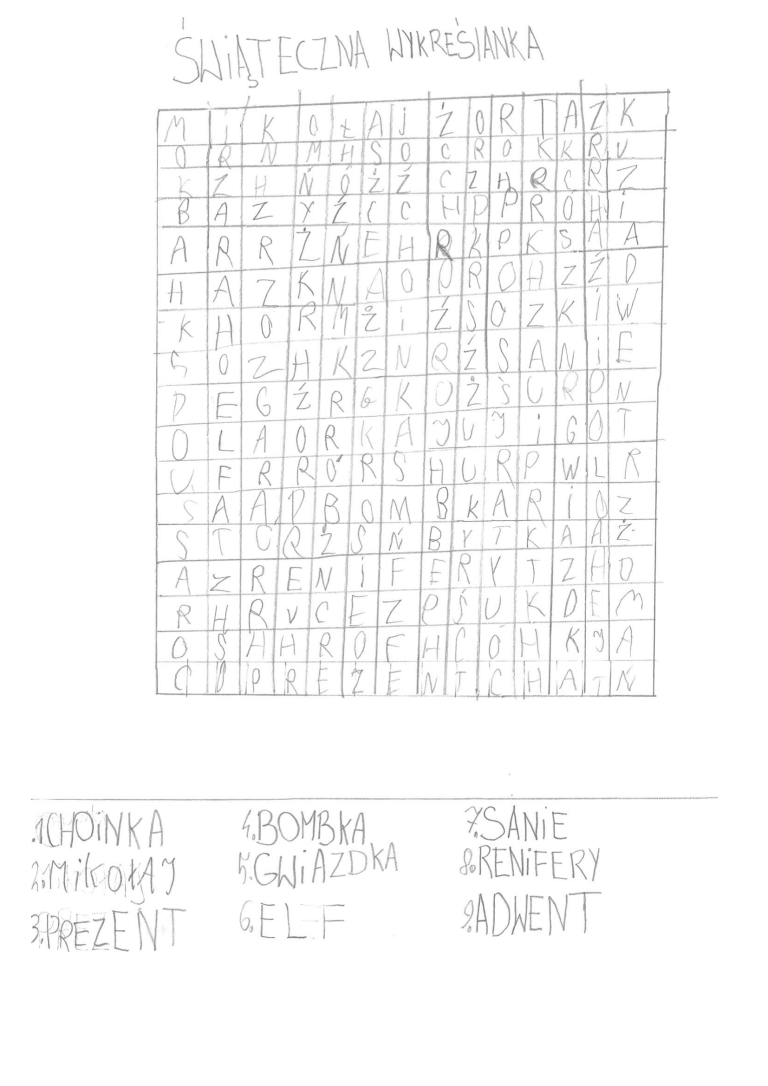 ŚWIĄTECZNA WYKREŚLANKA
M I K O Ł A J Ż O R T A Z K
O R N M H S O C R O K K R U
K Z H Ń Ó Ż Ź C Z H R C R Z
B A Z Y Ź C C H P P R O H I
A R R Ż Ń E H R K P K S A A
H A Z K N A O O R O H Z Ź D
K H O R M Ż I Ź S O Z K I W
S O Z H K Z N R Ź S A N I E
P E G Ź R G K O Ż S U R P N
O L A O R K A J U J I G O T
U F R R Ó R S H U R P W L R
S A A P B O M B K A R I O Z
S T C R Ż S Ń B Y T K A A Ż
A Z R E N I F E R Y T Z H O
R H R V C E Z P Ś U K D E M
O Ś H H R O F H C Ó H K J A
C D P R E Z E N T C H A T N
1.CHOINKA 4.BOMBKA 7.SANIE
2.MIKOŁAJ 5.GWIAZDKA 8.RENIFERY
3.PREZENT 6.ELF 9.ADWENT